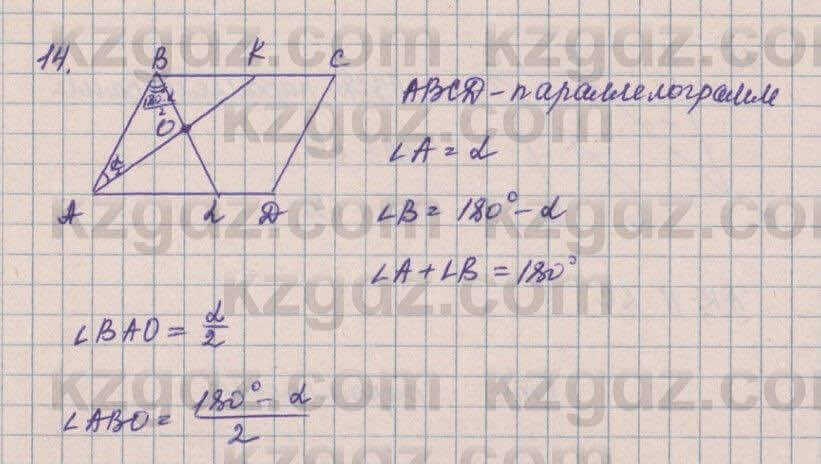 14.
B K C
(180°-α)/2
O
α/2
A L D
ABCD - параллелограмм
∠A = α
∠B = 180° - α
∠A + ∠B = 180°
∠BAO = α/2
∠ABO = (180° - α)/2
kzgdz.com kzgdz.com
kzgdz.com
kzgdz.com kzgdz.com
kzgdz.com
kzgdz.com kzgdz.com